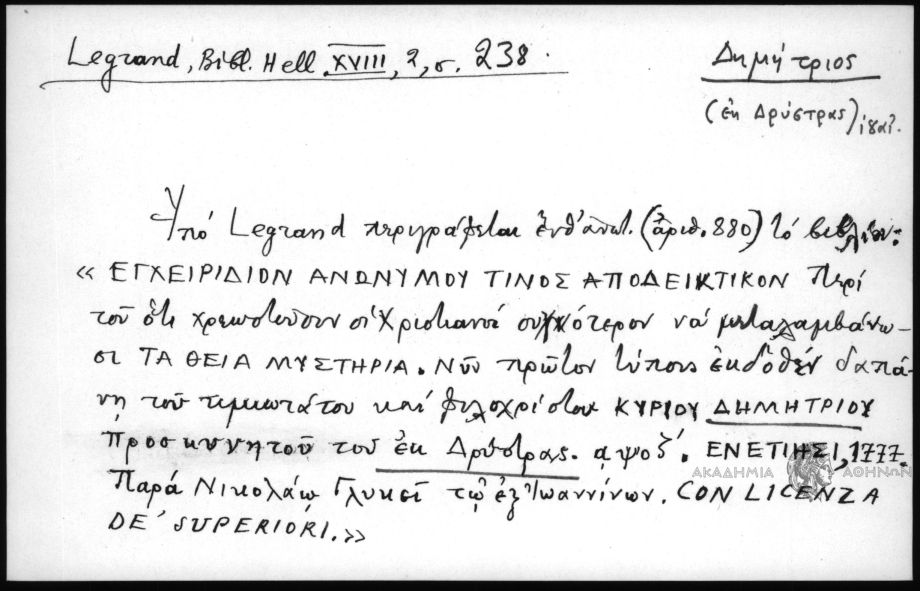 Legrand, Bibl. Hell. XVIII, 2, σ. 238.
Δημήτριος
(ἐκ Δρύστρας)
Ὑπό Legrand περιγράφεται ἐνθ' ἀνωτ. (ἀριθ. 880) τό βιβλίον:
« ΕΓΧΕΙΡΙΔΙΟΝ ΑΝΩΝΥΜΟΥ ΤΙΝΟΣ ΑΠΟΔΕΙΚΤΙΚΟΝ Περί
τοῦ ὅτι χρεωστοῦσιν οἱ Χριστιανοί συχνότερον νά μεταλαμβάνω-
σι ΤΑ ΘΕΙΑ ΜΥΣΤΗΡΙΑ. Νῦν πρῶτον τύποις ἐκδοθέν δαπά-
νῃ τοῦ τιμιωτάτου καί φιλοχρίστου ΚΥΡΙΟΥ ΔΗΜΗΤΡΙΟΥ
Προσκυνητοῦ τοῦ ἐκ Δρύστρας. αψοζ'. ΕΝΕΤΙΗΣΙ, 1777.
ΑΚΑΔΗΜΙΑ ΑΘΗΝΩΝ
Παρά Νικολάῳ Γλυκεῖ τῷ ἐξ Ἰωαννίνων. CON LICENZA
DE' SUPERIORI.»